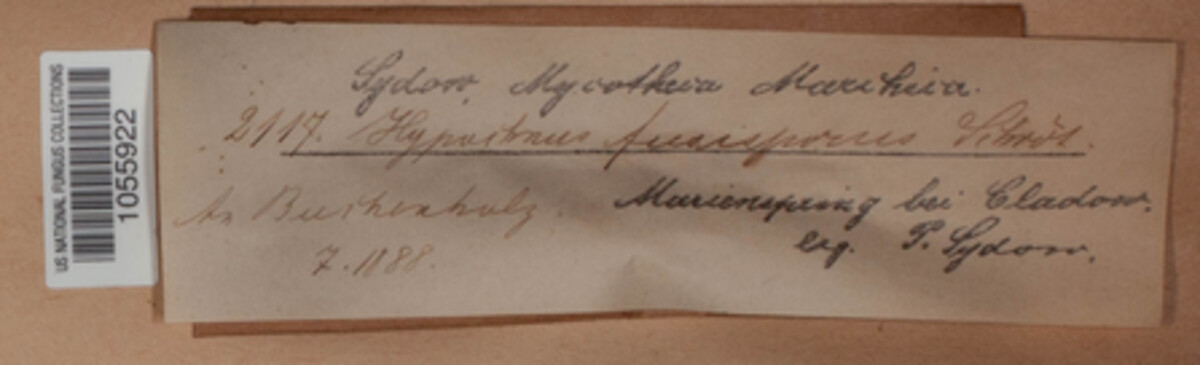 US NATIONAL FUNGUS COLLECTIONS
1055922
Sydow, Mycotheca Marchica.
2117. Hypochnus fusisporus Schröt.
An Buchenholz.
7.1888.
Marienspring bei Cladow.
leg. P. Sydow.